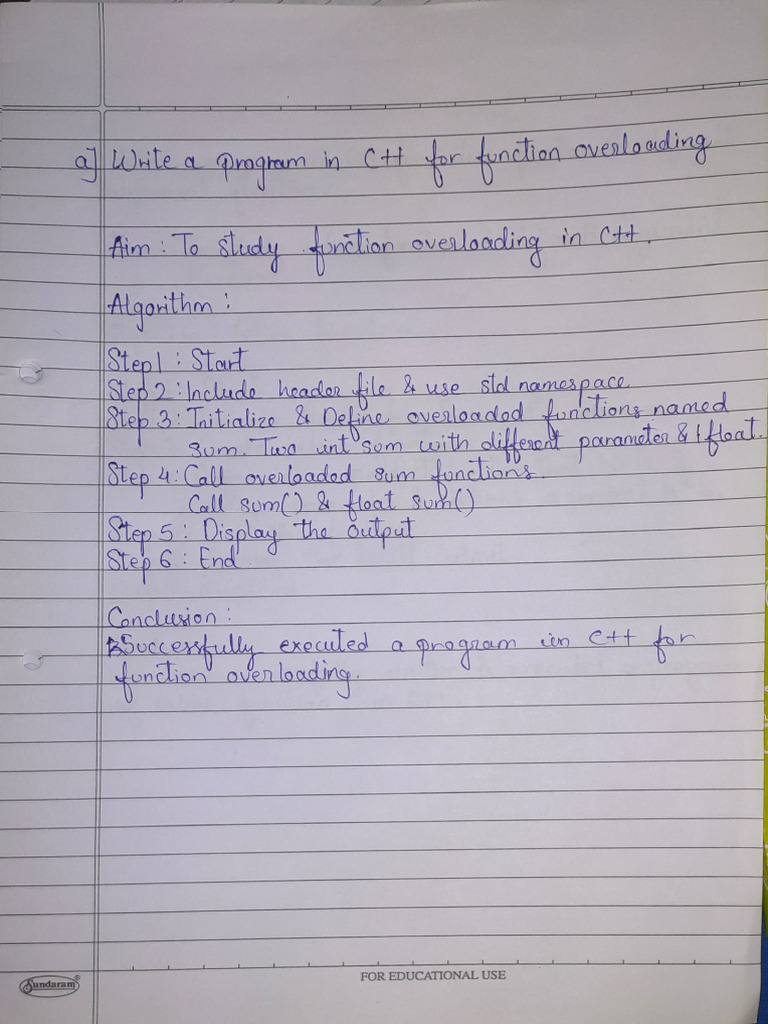 a] Write a program in C++ for function overloading
Aim : To study function overloading in C++.
Algorithm :
Step 1 : Start
Step 2 : Include header file & use std namespace
Step 3 : Initialize & Define overloaded functions named
sum. Two int sum with different parameter & 1 float.
Step 4 : Call overloaded sum functions.
Call sum() & float sum()
Step 5 : Display the output
Step 6 : End
Conclusion :
Successfully executed a program in C++ for
function overloading.
Sundaram®
FOR EDUCATIONAL USE